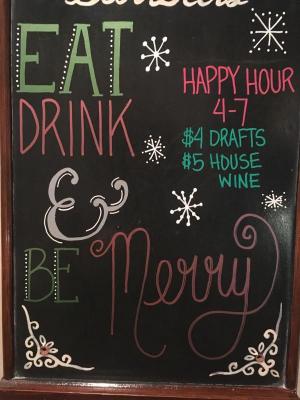 EAT
DRINK
&
BE Merry
HAPPY HOUR
4-7
$4 DRAFTS
$5 HOUSE
WINE